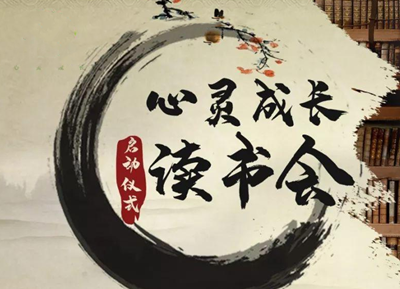 心灵成长
读书会
启动仪式